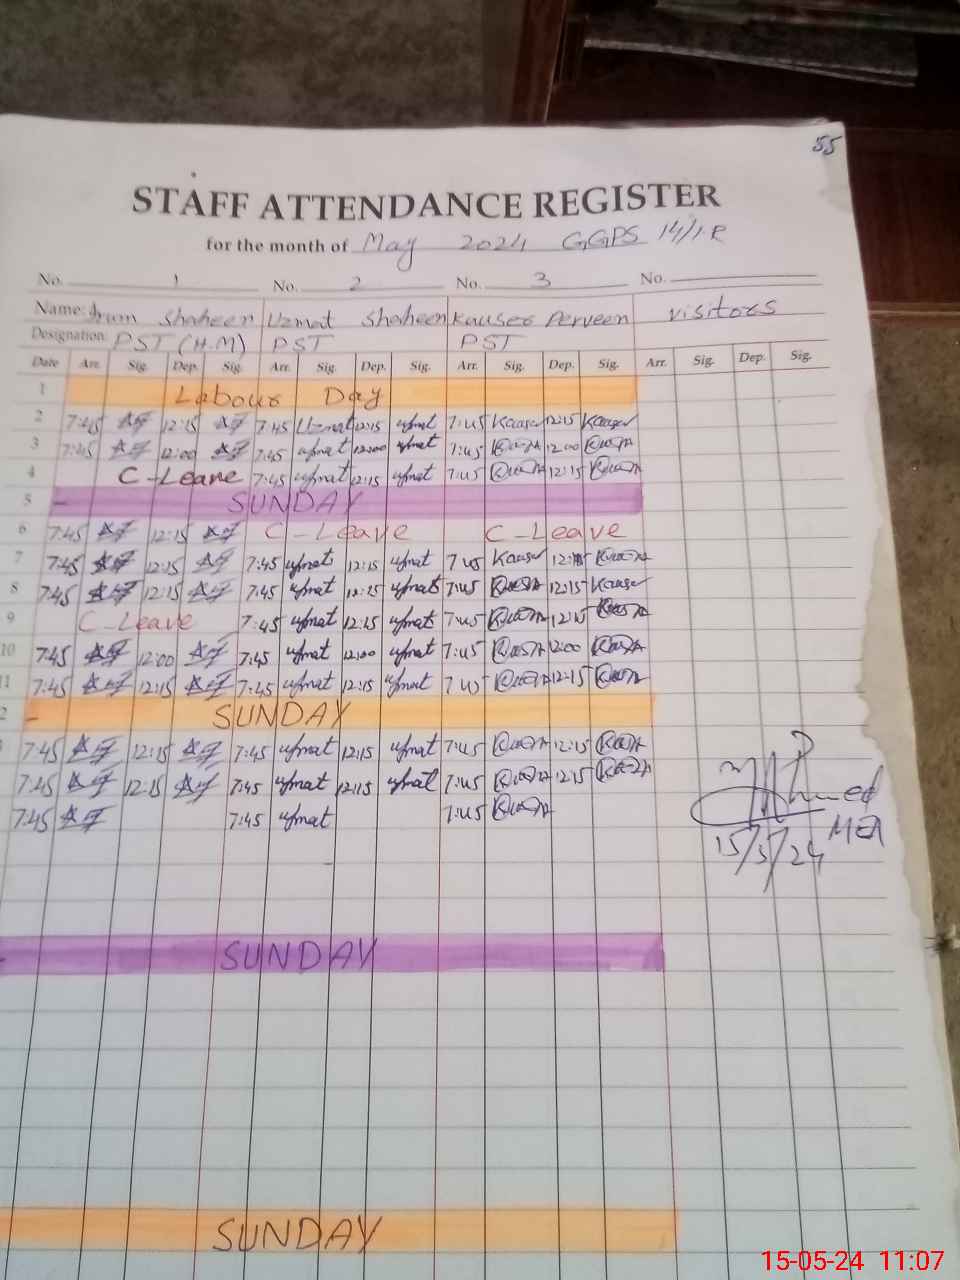 55
STAFF ATTENDANCE REGISTER
for the month of May 2024 GGPS 14/1-R
No. 1 No. 2 No. 3 No.
Name: Irum Shaheen Uzmat Shaheen Kauser Perveen visitors
Designation: PST (H.M) PST PST
Date Arr. Sig. Dep. Sig. Arr. Sig. Dep. Sig. Arr. Sig. Dep. Sig. Arr. Sig. Dep. Sig.
1 Labour Day
2 7:45 12:15 7:45 Uzmat 12:15 uzmat 7:45 Kauser 12:15 Kauser
3 7:45 12:00 7:45 uzmat 12:00 uzmat 7:45 12:00
4 C-Leave 7:45 uzmat 12:15 uzmat 7:45 12:15
5 SUNDAY
6 7:45 12:15 C-Leave C-Leave
7 7:45 12:15 7:45 uzmat 12:15 uzmat 7:45 Kauser 12:15
8 7:45 12:15 7:45 uzmat 12:15 uzmat 7:45 12:15 Kauser
9 C-Leave 7:45 uzmat 12:15 uzmat 7:45 12:15
10 7:45 12:00 7:45 uzmat 12:00 uzmat 7:45 12:00
11 7:45 12:15 7:45 uzmat 12:15 uzmat 7:45 12:15
2 SUNDAY
7:45 12:15 7:45 uzmat 12:15 uzmat 7:45 12:15
7:45 12:15 7:45 uzmat 12:15 uzmat 7:45 12:15
7:45 7:45 uzmat 7:45
MEA
15/5/24
SUNDAY
SUNDAY
15-05-24 11:07